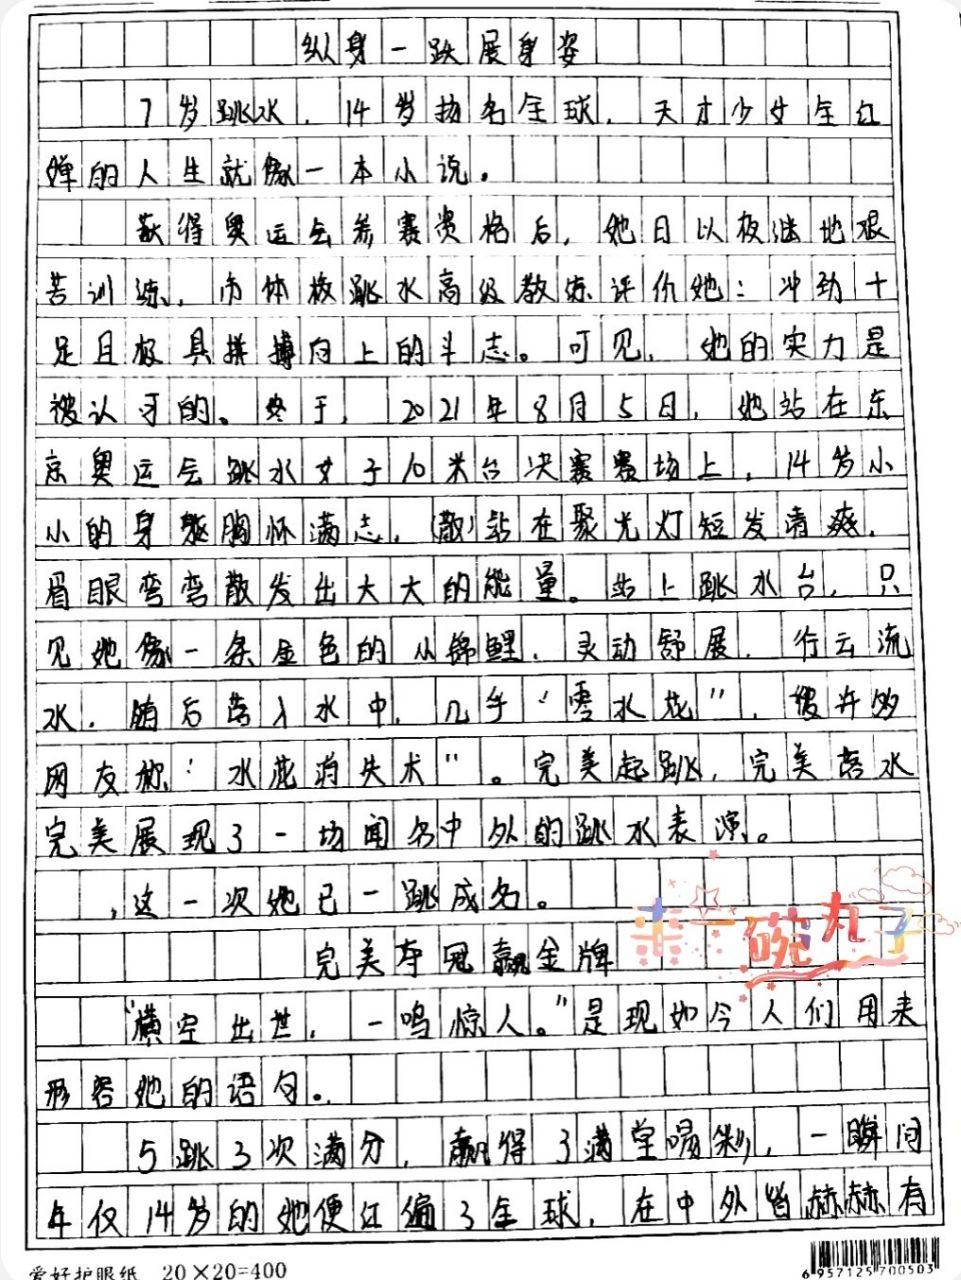 纵身一跃展身姿
7岁跳水，14岁扬名全球，天才少女全红
婵的人生就像一本小说。
获得奥运会参赛资格后，她日以夜继地艰
苦训练，市体校跳水高级教练评价她：冲劲十
足且极具拼搏向上的斗志。可见，她的实力是
被认可的。终于，2021年8月5日，她站在东
京奥运会跳水女子10米台决赛赛场上，14岁小
小的身躯胸怀满志，(散)站在聚光灯短发清爽，
眉眼弯弯散发出大大的能量。站上跳水台，只
见她像一条金色的小锦鲤，灵动舒展，行云流
水，随后落入水中，几乎“零水花”，被许多
网友称“水花消失术”。完美起跳，完美落水
完美展现了一场闻名中外的跳水表演。
，这一次她已一跳成名。
完美夺冠赢金牌
“横空出世，一鸣惊人。”是现如今人们用来
形容她的语句。
5跳3次满分，赢得了满堂喝彩，一瞬间
年仅14岁的她便红遍了全球，在中外皆赫赫有
爱好护眼纸 20×20=400
6957125700503
来一碗丸子